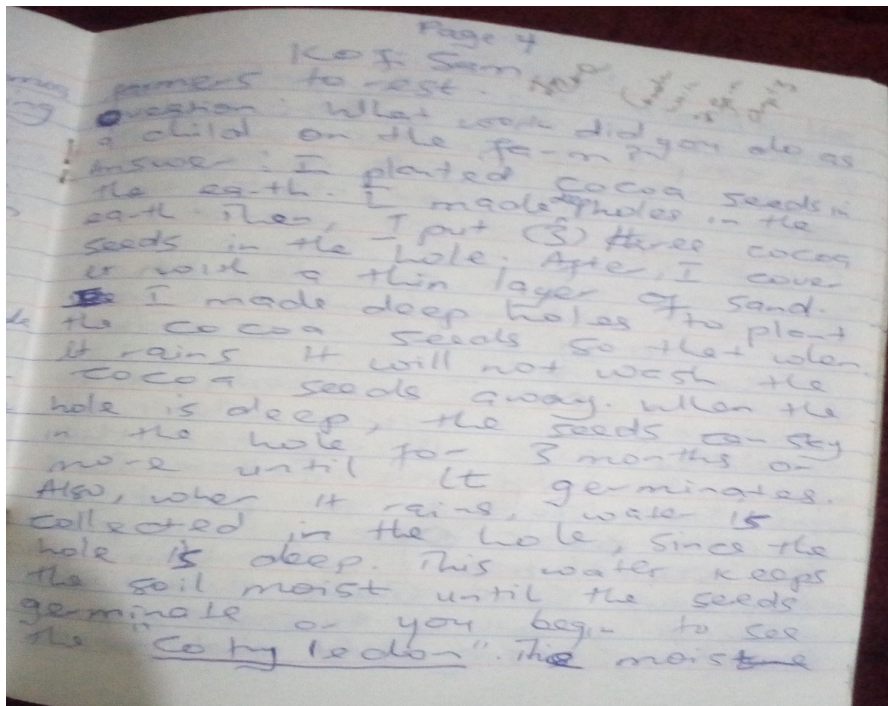 Page 4
Kofi Sam
farmers to rest.
Question: What work did you do as
a child on the farm?
Answer: I planted cocoa seeds in
the earth. I made holes in the
earth. Then, I put (3) three cocoa
seeds in the hole. After, I cover
it with a thin layer of sand.
I made deep holes to plant
the cocoa seeds so that when
it rains it will not wash the
cocoa seeds away. When the
hole is deep, the seeds can stay
in the hole for 3 months or
more until it germinates.
Also, when it rains, water is
collected in the hole, since the
hole is deep. This water keeps
the soil moist until the seeds
germinate or you begin to see
the "cotyledon". The moist